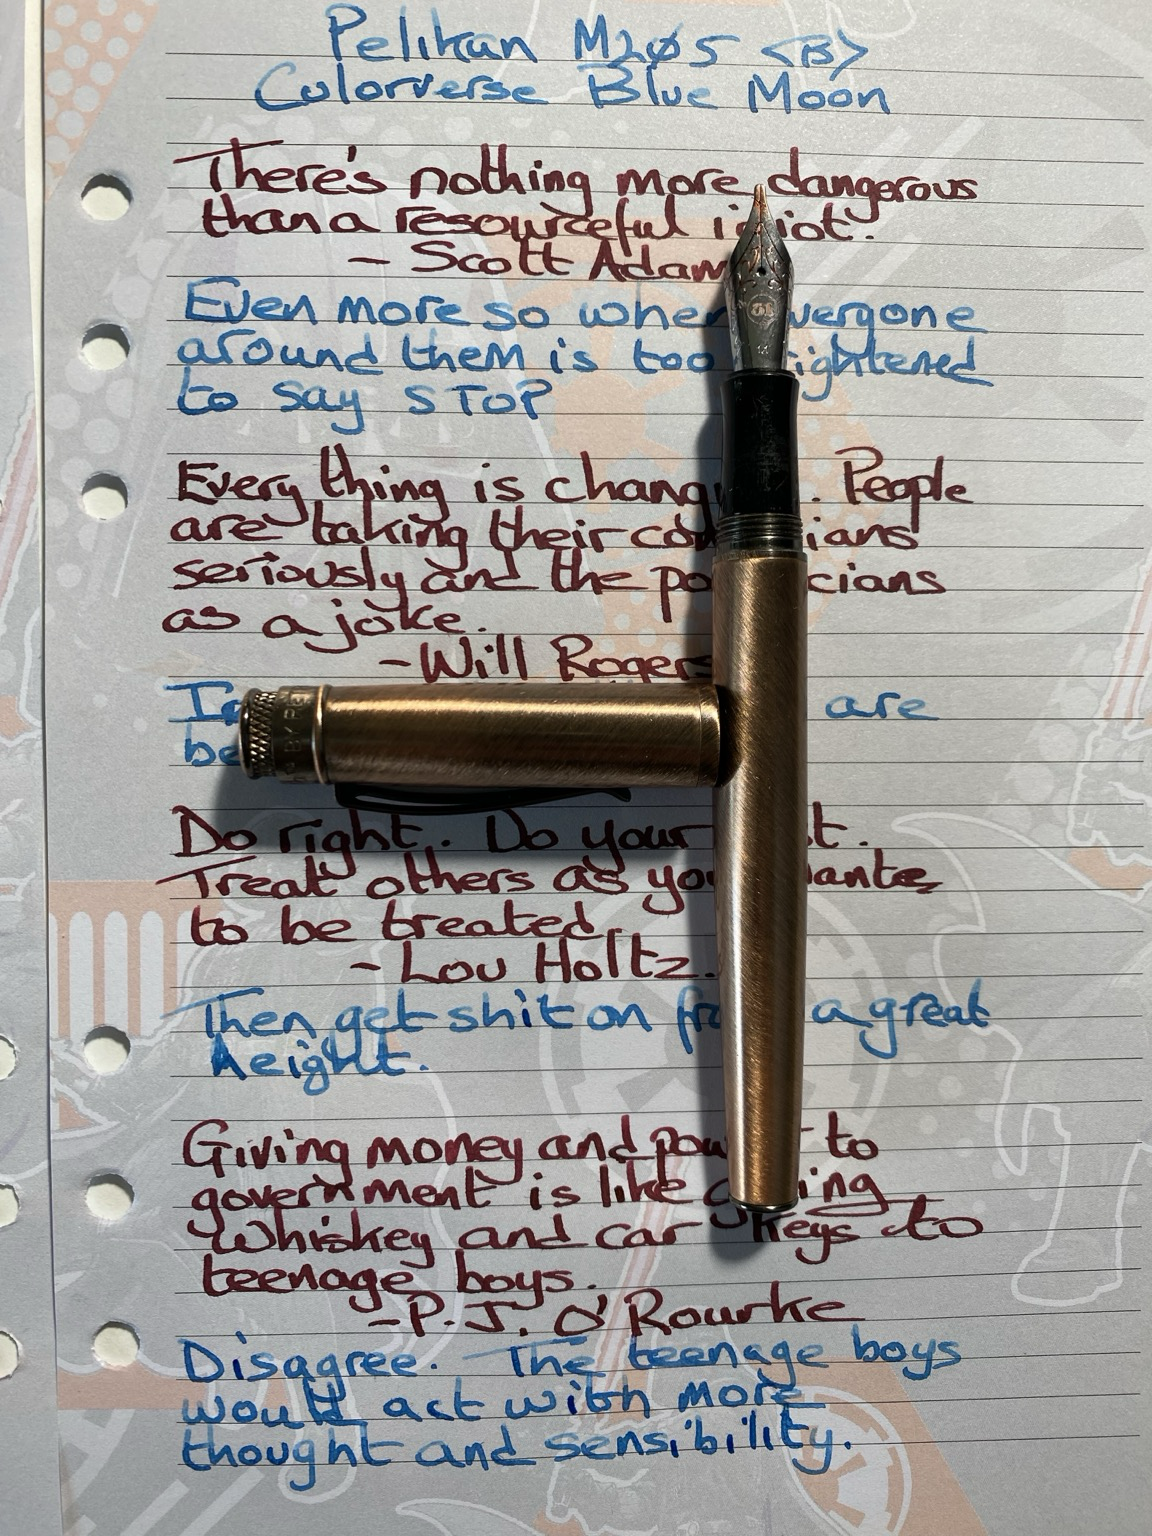 Pelikan M2ø5 <B>
Colorverse Blue Moon
There's nothing more dangerous
than a resourceful idiot.
- Scott Adam
Even more so when everyone
around them is too frightened
to say STOP
Every thing is chang . People
are taking their comedians
seriously and the politicians
as a joke.
- Will Rogers
are
be
Do right. Do your t.
Treat others as you wants
to be treated
- Lou Holtz.
Then get shit on from a great
height.
Giving money and power to
government is like giving
Whiskey and car keys to
teenage boys.
- P.J. O'Rourke
Disagree. The teenage boys
would act with more
thought and sensibility.